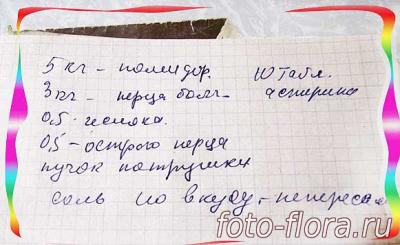 5 кг - помидор. 10 табл.
3 кг - перца болг- аспирина
0,5 - чеснока.
0,5 - острого перца
пучок петрушки
соль по вкусу, - непересол
foto-flora.ru